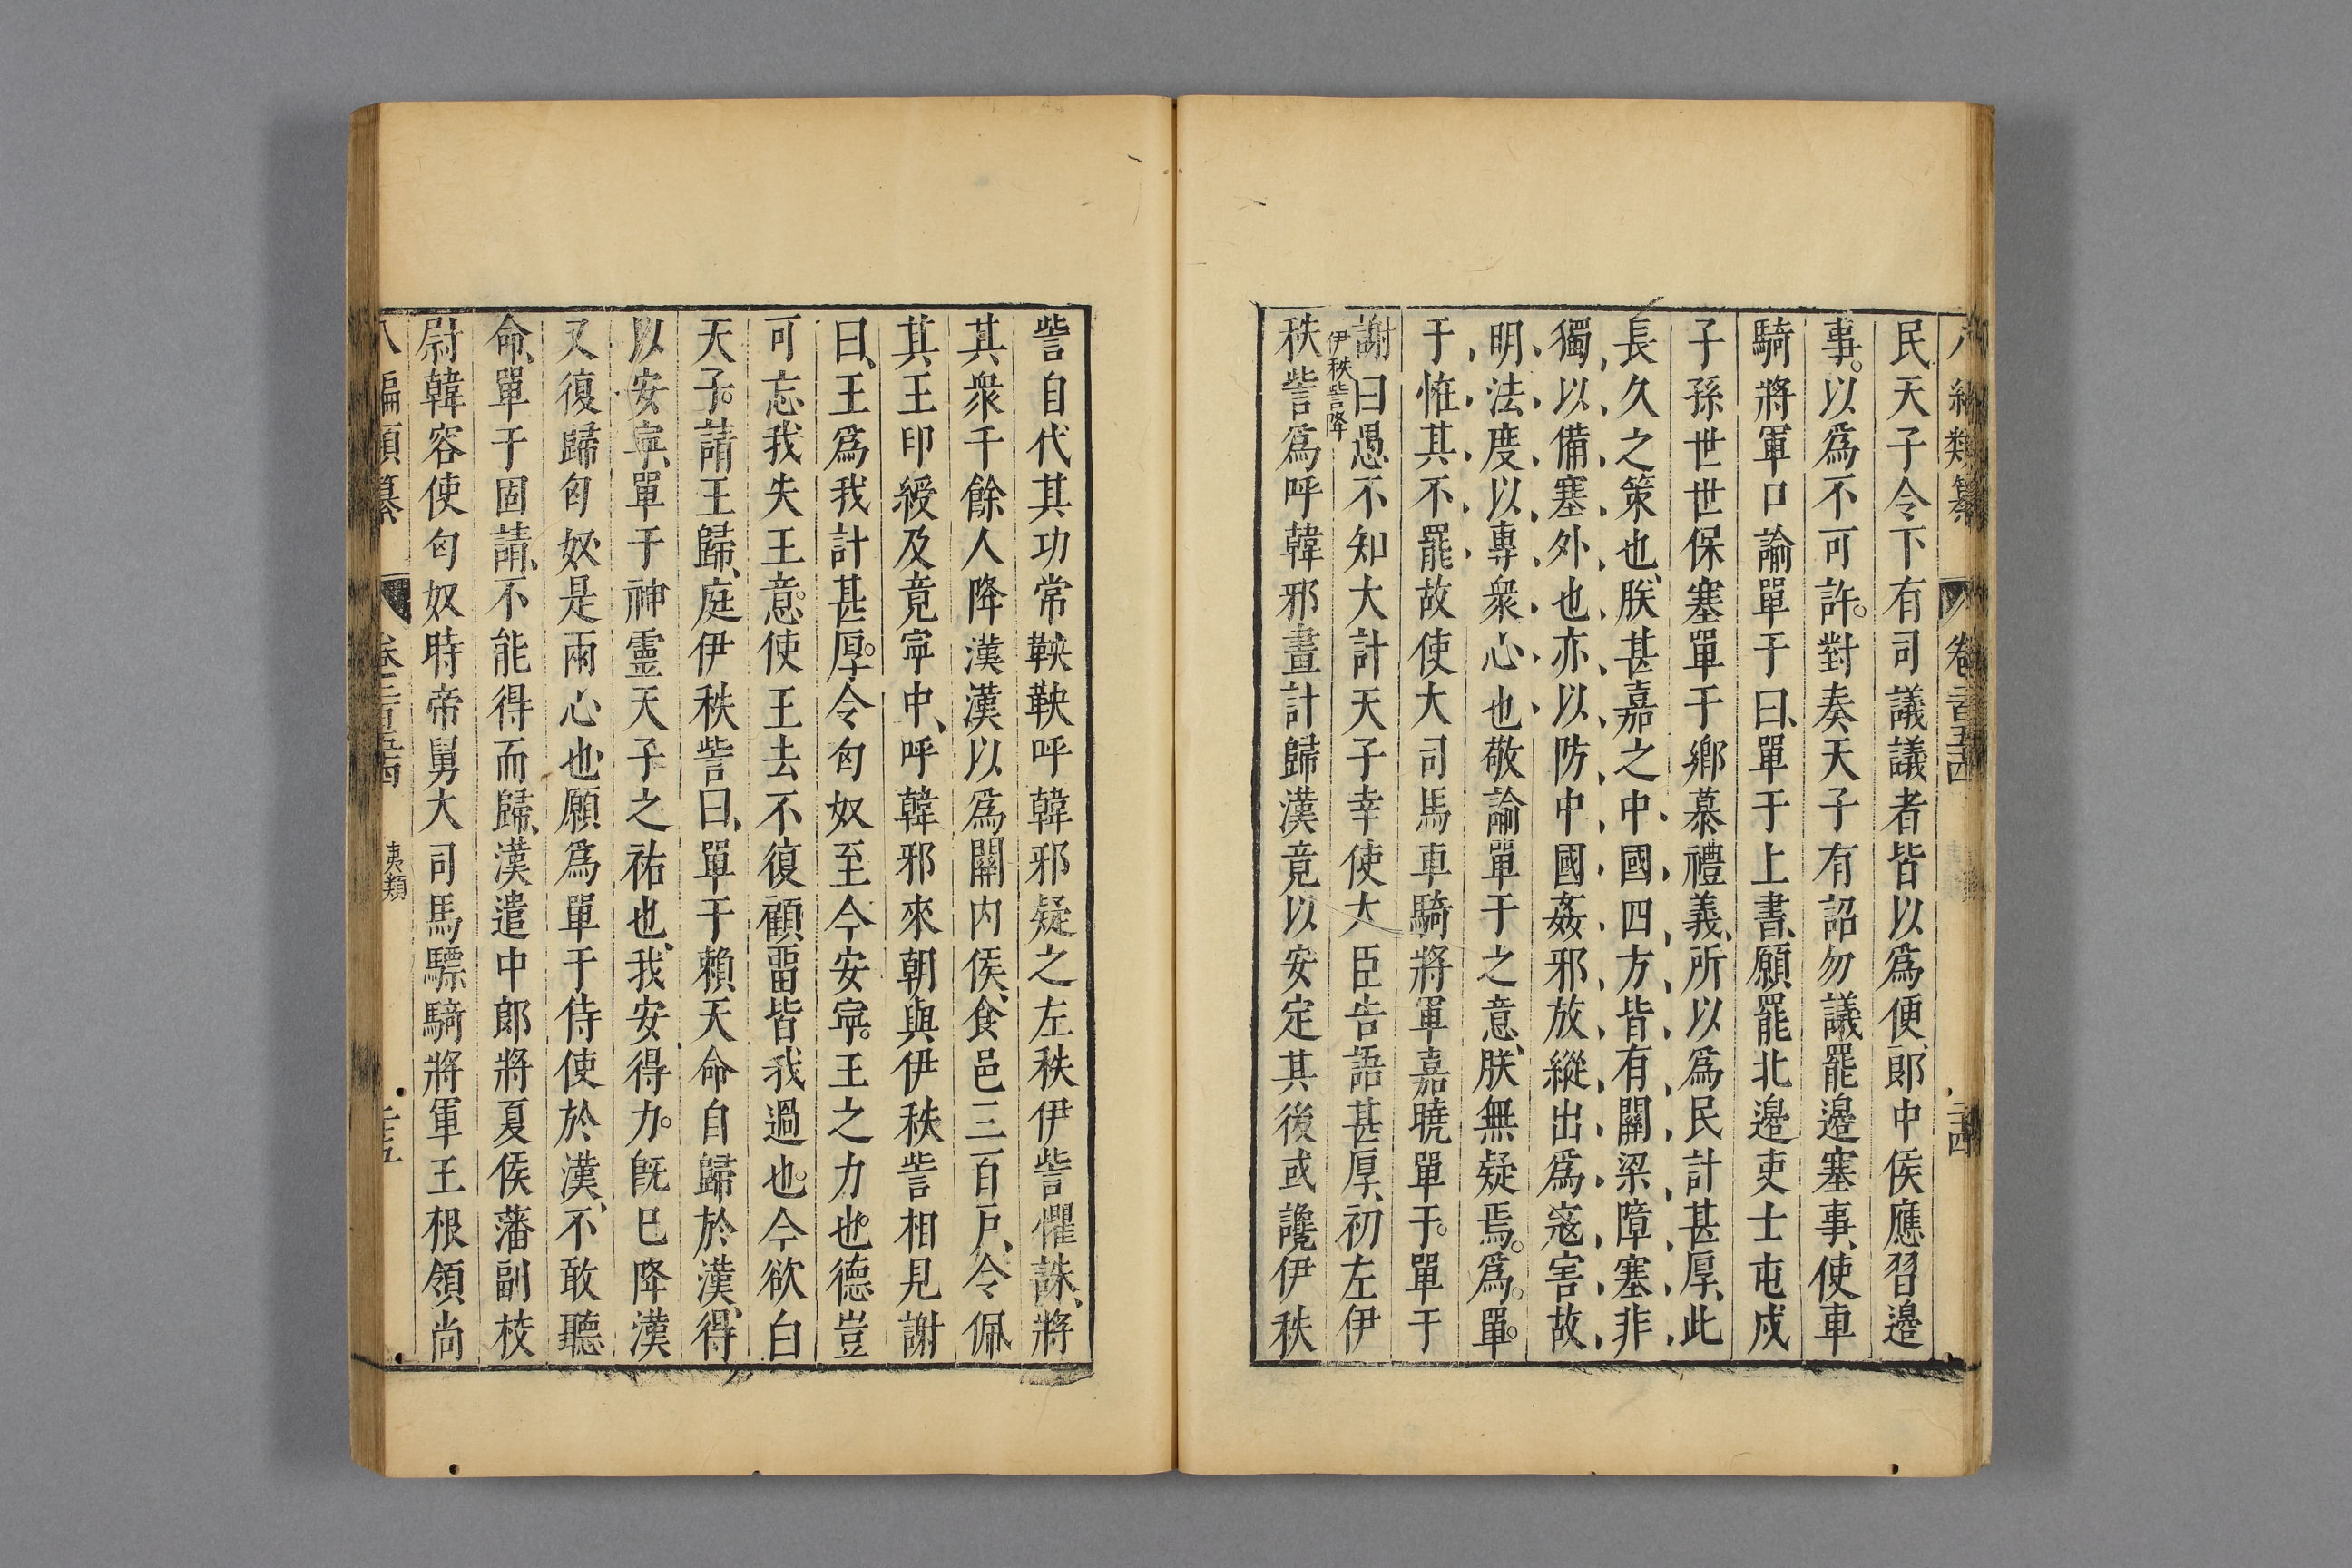 民天子令下有司議議者皆以爲便郞中侯應習邊
事。以爲不可許。對奏天子有詔勿議罷邊塞事、使車
騎將軍口諭單于曰、單于上書、願罷北邊吏士屯戍
子孫世世保塞單于鄉慕禮義、所以爲民計甚厚、此
長久之策也、朕甚嘉之中國四方皆有關梁障塞非
獨以備塞外也亦以防中國姦邪放縱出爲寇害故
明法度以專衆心也敬諭單于之意、朕無疑焉。爲。單。
于恠其不罷故使大司馬車騎將軍嘉曉單于。單于
謝曰愚不知大計天子幸使大臣告語甚厚、初左伊
伊秩訾降
秩訾爲呼韓邪畫計歸漢竟以安定其後或讒伊秩
訾自伐其功常鞅鞅呼韓邪疑之左秩伊訾懼誅、將
其衆千餘人降漢漢以爲關内侯、食邑三百戸、令佩
其王印綬及竟寧中、呼韓邪來朝與伊秩訾相見謝
曰、王爲我計甚厚。令匈奴至今安寧。王之力也。德豈
可忘我失王意。使王去不復顧畱皆我過也。今欲白
天子。請王歸、庭伊秩訾曰、單于賴天命自歸於漢、得
以安寧、單于神靈天子之祐也、我安得力。旣已降漢
又復歸匈奴是兩心也願爲單于侍使於漢、不敢聽
命、單于固請、不能得而歸、漢遣中郞將夏侯藩副校
尉韓容使匈奴時帝舅大司馬驃騎將軍王根領尚
八編類纂 卷二百五四 夷類 二十五